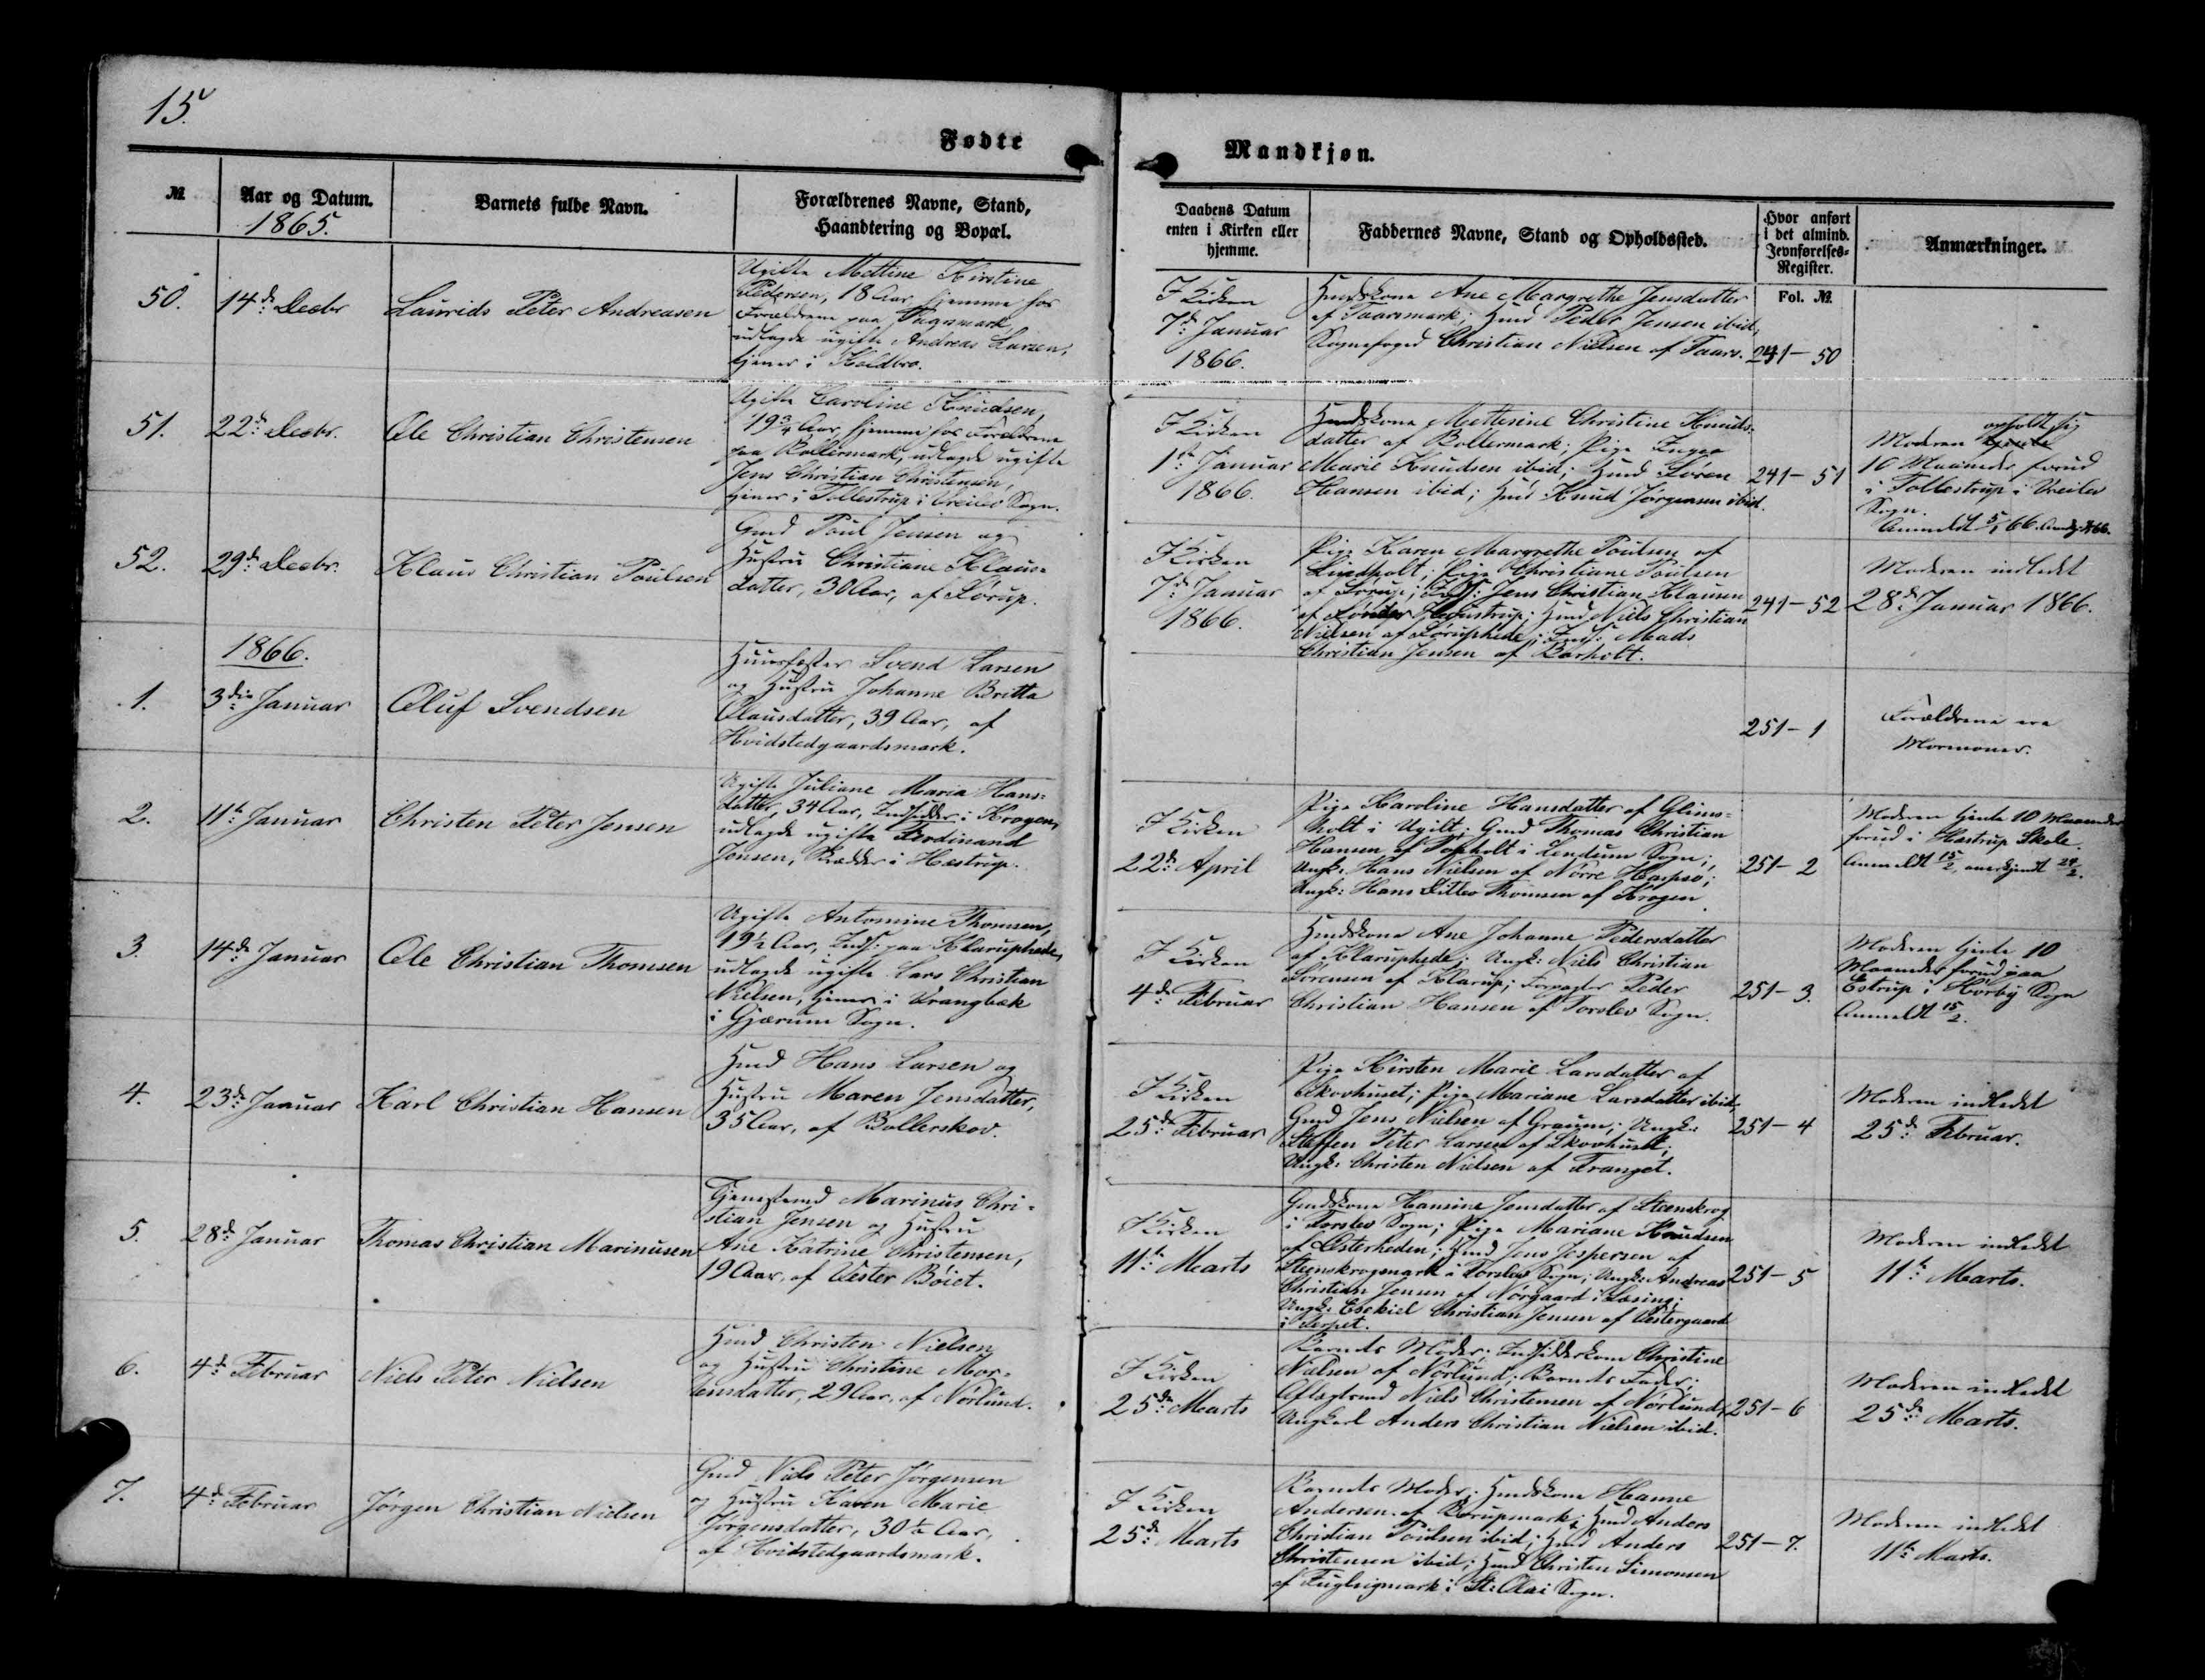 15.
Fødte
Mandkjøn.
№
Aar og Datum.
1865.
Barnets fulde Navn.
Forældrenes Navne, Stand,
Haandtering og Bopæl.
Daabens Datum
enten i Kirken eller
hjemme.
Faddernes Navne, Stand og Opholdssted.
Hvor anført
i det almind.
Jevnførelses-
Register.
Fol. №
Anmærkninger.
50.
14de Decbr
Laurids Peter Andreasen
Ugifte Mettine Kirstine
Pedersen, 18 Aar, hjemme hos
Forældrene paa
udlagde ugifte Andreas Larsen,
tjener i Holdbro.
I Kirken
7de Januar
1866.
Huusmdskone Ane Margrethe Jensdatter
af Taarsmark; Hmd Peder Jensen ibid,
Sognefoged Christian Nielsen af Taars.
241 - 50
51.
22de Decbr.
Ole Christian Christensen
Ugifte Caroline Knudsen,
19¾ Aar, hjemme hos Forældrene
paa Bollermark, udlagde ugifte
Jens Christian Christensen,
tjener i Tollestrup i Vreilev Sogn.
I Kirken
1ste Januar
1866.
Hmdskone Mettesine Christine Knuds-
datter af Bollermark; Pige Inger
Marie Knudsen ibid; Hmd Søren
Hansen ibid; Hmd Knud Jørgensen ibid.
241 - 51
Moderen opholdt sig
10 Maaneder forud
i Tollestrup i Vreilev
Sogn.
Anmeldt 5/1 66.
52.
29de Decbr.
Klaus Christian Poulsen
Gmd Poul Jensen og
Hustru Christiane Klaus-
datter, 30 Aar, af Sørup.
I Kirken
7de Januar
1866.
Pige Karen Margrethe Poulsen af
Lindholt; Pige Christiane Poulsen
af Sørup; Inds: Jens Christian Klausen
af Sønder Harristrup; Hmd Niels Christian
Nielsen af Søruphede; Inds: Mads
Christian Jensen af Barholt.
241 - 52
Moderen indledet
28de Januar 1866.
1866.
1.
3die Januar
Oluf Svendsen
Huusfæster Svend Larsen
og Hustru Johanne Britta
Olausdatter, 39 Aar, af
Hvidstedgaardsmark.
251 - 1
Forældrene ere
Mormoner.
2.
11te Januar
Christen Peter Jensen
Ugifte Juliane Maria Hans-
datter, 34 Aar, Indsidder i Krogen,
udlagde ugifte Ferdinand
Jensen, Skrædder i Hæstrup.
I Kirken
22de April
Pige Karoline Hansdatter af Glims-
holt i Ugilt; Gmd Thomas Christian
Hansen af Topholt i Lendum Sogn;
Ungk: Hans Nielsen af Nørre Harpsø;
Ungk: Hans Ditlev Thomsen af Krogen.
251 - 2
Moderen tjente 10 Maaneder
forud i Hæstrup Skole.
Anmeldt 15/2, anerkjendt 24/2.
3.
14de Januar
Ole Christian Thomsen
Ugifte Antomine Thomsen,
19½ Aar, Inds: paa Klaruphede,
udlagde ugifte Lars Christian
Nielsen, tjener i Vrangbæk
i Gjærum Sogn.
I Kirken
4de Februar
Hmdskone Ane Johanne Pedersdatter
af Klaruphede; Ungk: Niels Christian
Sørensen af Klarup; Forpagter Peder
Christian Hansen af Torslev Sogn.
251 - 3.
Moderen tjente 10
Maaneder forud paa
Estrup i Hørby Sogn
Anmeldt 15/2.
4.
23de Januar
Karl Christian Hansen
Hmd Hans Larsen og
Hustru Maren Jensdatter,
35 Aar, af Bollerskov.
I Kirken
25de Februar
Pige Kirsten Marie Larsdatter af
Skovhuset; Pige Mariane Larsdatter ibid,
Gmd Jens Nielsen af Graum; Ungk:
Steffen Peter Larsen af Skovhuset;
Ungk: Christen Nielsen af Tranget.
251 - 4
Moderen indledet
25de Februar.
5.
28de Januar
Thomas Christian Marinusen
Tjenestemd Marinus Chri-
stian Jensen og Hustru
Ane Katrine Christensen,
19 Aar, af Vester Bøiet.
I Kirken
11te Marts
Gmdskone Hansine Jensdatter af Steenskrog
i Torslev Sogn; Pige Mariane Knudsen
af Østerheden; Hmd Jens Jespersen af
Steenskrogsmark i Torslev Sogn; Ungk: Andreas
Christian Jensen af Nørgaard i Læsing;
Ungk: Esekiel Christian Jensen af Vestergaard
i Serpet.
251 - 5
Moderen indledet
11te Marts.
6.
4de Februar
Niels Peter Nielsen
Hmd Christen Nielsen
og Hustru Christine Mor-
tensdatter, 29 Aar, af Nørlund.
I Kirken
25de Marts
Barnets Moder; Indsidderkone Christine
Nielsen af Nørlund; Barnets Fader;
Aftægtsmd Niels Christensen af Nørlund;
Ungkarl Anders Christian Nielsen ibid.
251 - 6
Moderen indledet
25de Marts.
7.
4de Februar
Jørgen Christian Nielsen
Gmd Niels Peter Jørgensen
og Hustru Karen Marie
Jørgensdatter, 30½ Aar,
af Hvidstedgaardsmark.
I Kirken
25de Marts
Barnets Moder; Hmdskone Hanne
Andersen af Børupmark; Hmd Anders
Christian Poulsen ibid; Hmd Anders
Christensen ibid; Hmd Christen Simonsen
af Fuglsigmark i St: Olai Sogn.
251 - 7.
Moderen indledet
11te Marts.